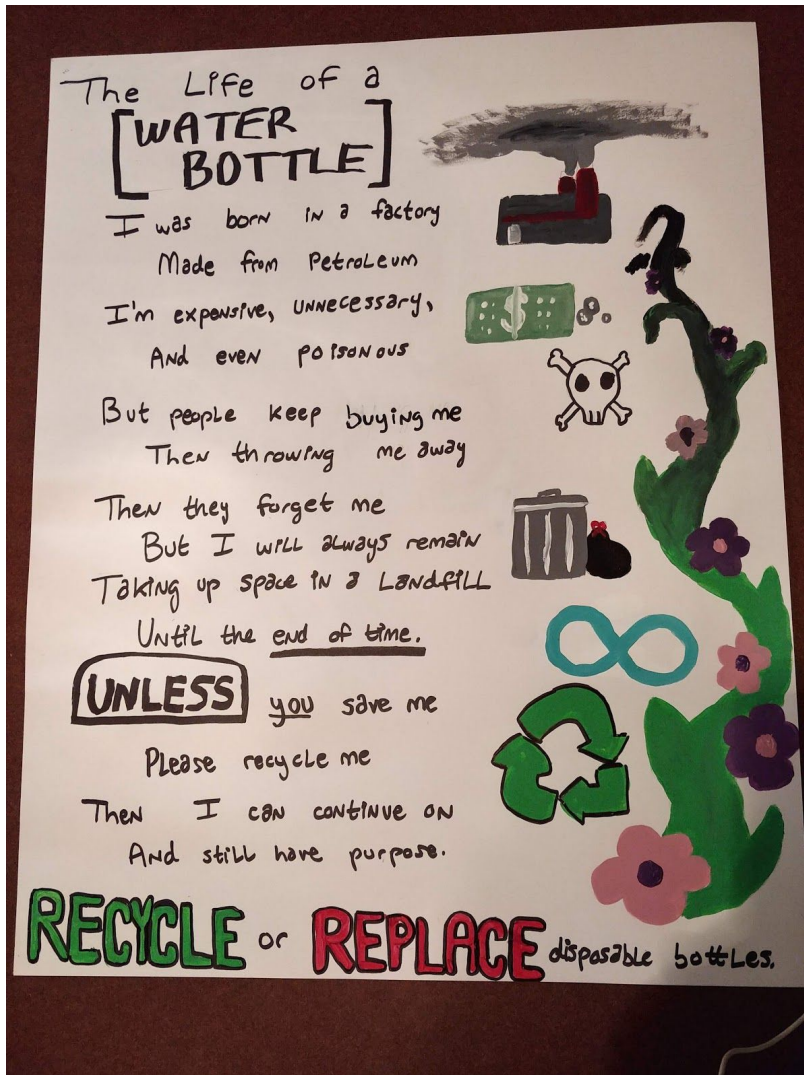 The Life of a
[WATER
BOTTLE]
I was born in a factory
Made from Petroleum
I'm expensive, unnecessary,
And even poisonous
But people keep buying me
Then throwing me away
Then they forget me
But I will always remain
Taking up space in a Landfill
Until the end of time.
UNLESS you save me
Please recycle me
Then I can continue on
And still have purpose.
RECYCLE or REPLACE disposable bottles.